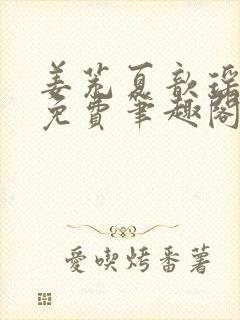 姜荒夏歆瑶
免費筆趣閣
愛喫烤番薯